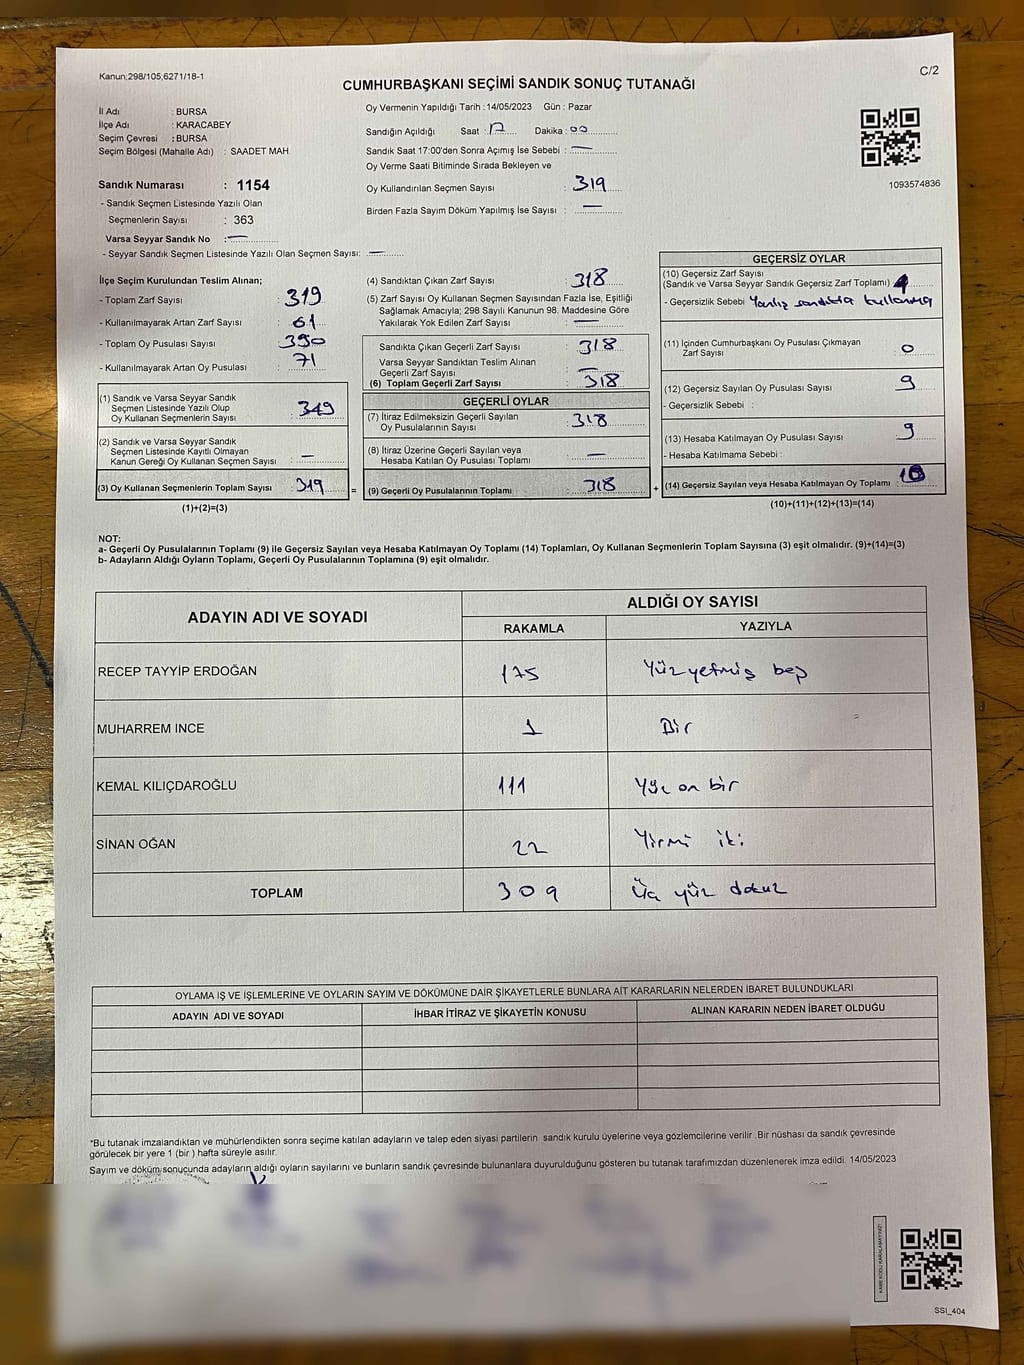 Kanun;298/105;6271/18-1
C/2
CUMHURBAŞKANI SEÇİMİ SANDIK SONUÇ TUTANAĞI
İl Adı : BURSA
İlçe Adı : KARACABEY
Seçim Çevresi : BURSA
Seçim Bölgesi (Mahalle Adı) : SAADET MAH.
Sandık Numarası : 1154
- Sandık Seçmen Listesinde Yazılı Olan
Seçmenlerin Sayısı : 363
Varsa Seyyar Sandık No : —
- Seyyar Sandık Seçmen Listesinde Yazılı Olan Seçmen Sayısı: —
Oy Vermenin Yapıldığı Tarih : 14/05/2023 Gün : Pazar
Sandığın Açıldığı Saat : 17 Dakika : 00
Sandık Saat 17:00'den Sonra Açımış İse Sebebi : —
Oy Verme Saati Bitiminde Sırada Bekleyen ve
Oy Kullandırılan Seçmen Sayısı : 319
Birden Fazla Sayım Döküm Yapılmış İse Sayısı : —
1093574836
İlçe Seçim Kurulundan Teslim Alınan;
- Toplam Zarf Sayısı : 319
- Kullanılmayarak Artan Zarf Sayısı : 61
- Toplam Oy Pusulası Sayısı : 390
- Kullanılmayarak Artan Oy Pusulası : 71
(1) Sandık ve Varsa Seyyar Sandık
Seçmen Listesinde Yazılı Olup
Oy Kullanan Seçmenlerin Sayısı : 349
(2) Sandık ve Varsa Seyyar Sandık
Seçmen Listesinde Kayıtlı Olmayan
Kanun Gereği Oy Kullanan Seçmen Sayısı : —
(3) Oy Kullanan Seçmenlerin Toplam Sayısı : 319 =
(1)+(2)=(3)
(4) Sandıktan Çıkan Zarf Sayısı : 318
(5) Zarf Sayısı Oy Kullanan Seçmen Sayısından Fazla İse, Eşitliği
Sağlamak Amacıyla; 298 Sayılı Kanunun 98. Maddesine Göre
Yakılarak Yok Edilen Zarf Sayısı : —
Sandıkta Çıkan Geçerli Zarf Sayısı : 318
Varsa Seyyar Sandıktan Teslim Alınan
Geçerli Zarf Sayısı : —
(6) Toplam Geçerli Zarf Sayısı : 318
GEÇERLİ OYLAR
(7) İtiraz Edilmeksizin Geçerli Sayılan
Oy Pusulalarının Sayısı : 318
(8) İtiraz Üzerine Geçerli Sayılan veya
Hesaba Katılan Oy Pusulası Toplamı : —
(9) Geçerli Oy Pusulalarının Toplamı : 318 +
GEÇERSİZ OYLAR
(10) Geçersiz Zarf Sayısı
(Sandık ve Varsa Seyyar Sandık Geçersiz Zarf Toplamı) :
- Geçersizlik Sebebi : Yanlış sandıkta kullanma
(11) İçinden Cumhurbaşkanı Oy Pusulası Çıkmayan
Zarf Sayısı : 0
(12) Geçersiz Sayılan Oy Pusulası Sayısı : 9
- Geçersizlik Sebebi :
(13) Hesaba Katılmayan Oy Pusulası Sayısı : 9
- Hesaba Katılmama Sebebi :
(14) Geçersiz Sayılan veya Hesaba Katılmayan Oy Toplamı : 10
(10)+(11)+(12)+(13)=(14)
NOT:
a- Geçerli Oy Pusulalarının Toplamı (9) ile Geçersiz Sayılan veya Hesaba Katılmayan Oy Toplamı (14) Toplamları, Oy Kullanan Seçmenlerin Toplam Sayısına (3) eşit olmalıdır. (9)+(14)=(3)
b- Adayların Aldığı Oyların Toplamı, Geçerli Oy Pusulalarının Toplamına (9) eşit olmalıdır.
ADAYIN ADI VE SOYADI
ALDIĞI OY SAYISI
RAKAMLA YAZIYLA
RECEP TAYYİP ERDOĞAN 175 Yüz yetmiş beş
MUHARREM İNCE 1 Bir
KEMAL KILIÇDAROĞLU 111 Yüz on bir
SİNAN OĞAN 22 Yirmi iki
TOPLAM 309 Üç yüz dokuz
OYLAMA İŞ VE İŞLEMLERİNE VE OYLARIN SAYIM VE DÖKÜMÜNE DAİR ŞİKAYETLERLE BUNLARA AİT KARARLARIN NELERDEN İBARET BULUNDUKLARI
ADAYIN ADI VE SOYADI İHBAR İTİRAZ VE ŞİKAYETİN KONUSU ALINAN KARARIN NEDEN İBARET OLDUĞU
*Bu tutanak imzalandıktan ve mühürlendikten sonra seçime katılan adayların ve talep eden siyasi partilerin sandık kurulu üyelerine veya gözlemcilerine verilir. Bir nüshası da sandık çevresinde
görülecek bir yere 1 (bir) hafta süreyle asılır.
Sayım ve döküm sonucunda adayların aldığı oyların sayılarını ve bunların sandık çevresinde bulunanlara duyurulduğunu gösteren bu tutanak tarafımızdan düzenlenerek imza edildi. 14/05/2023
KARE KODU KARALAMAYINIZ!
SSI_404